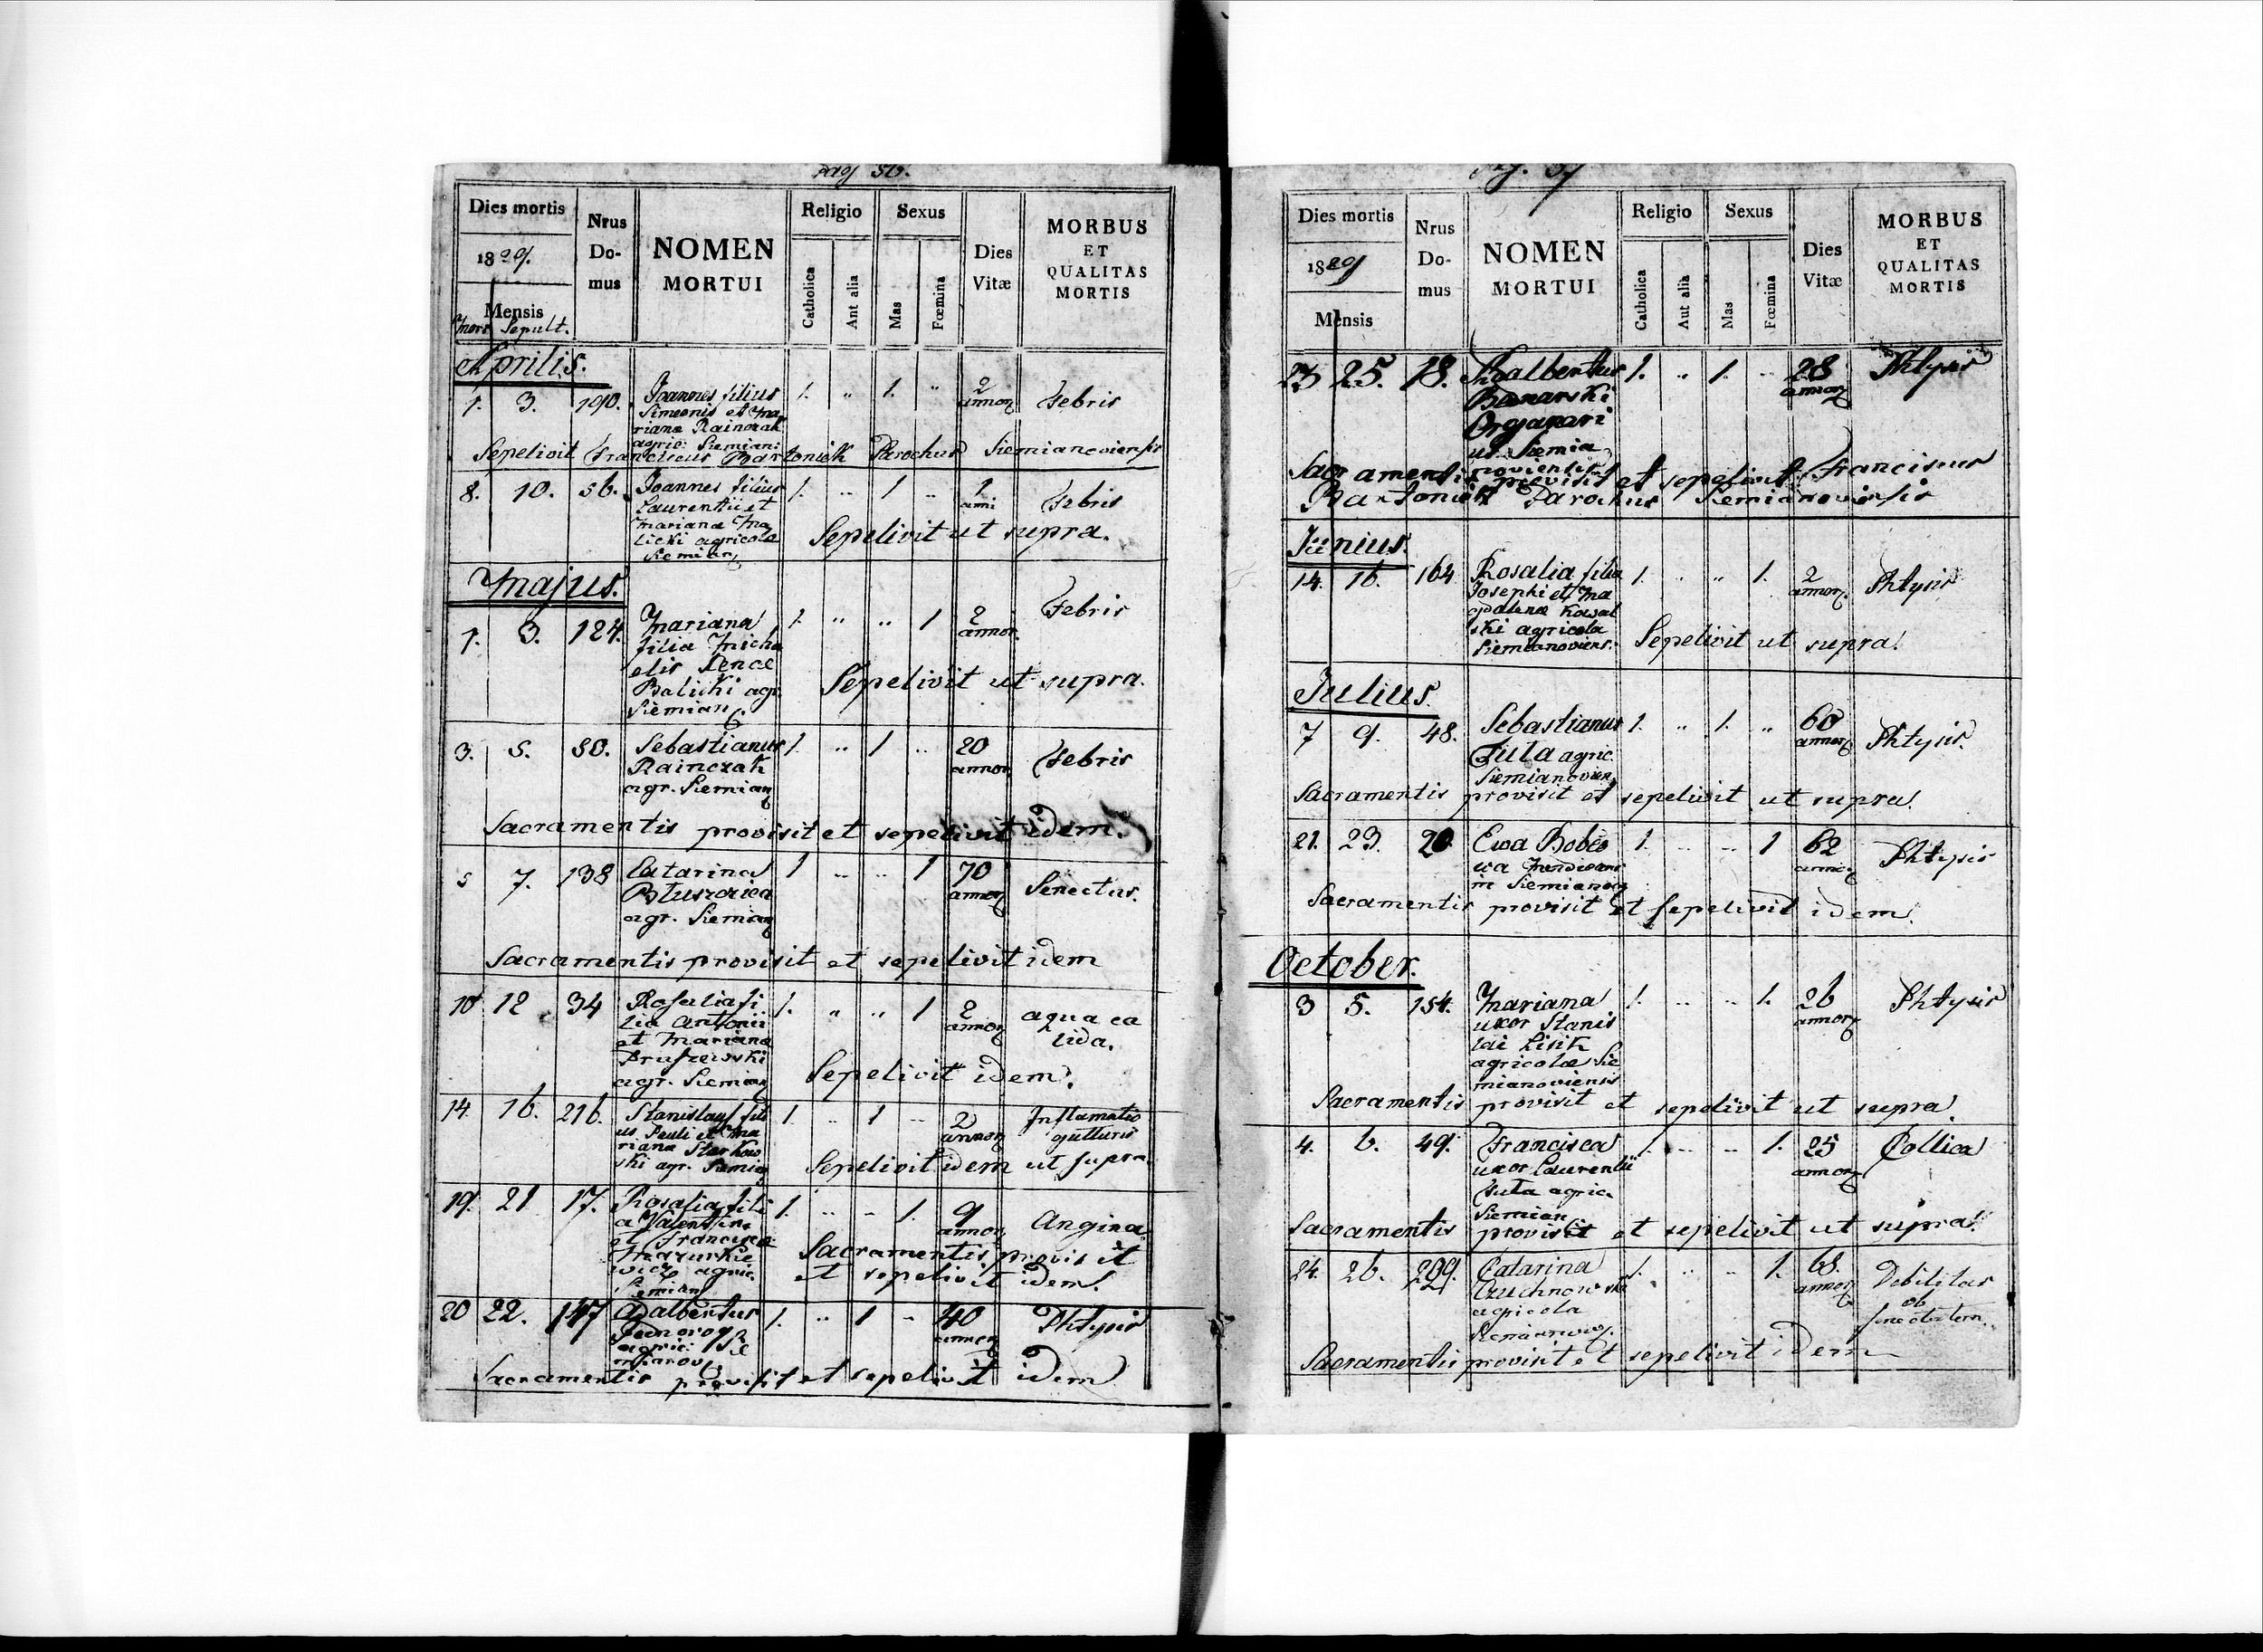 pag 56.
Dies mortis
Nrus
Do-
mus
NOMEN
MORTUI
Religio
Sexus
Dies
Vitæ
MORBUS
ET
QUALITAS
MORTIS
1829.
Mensis
Mort Sepult.
Catholica
Aut alia
Mas
Fœmina
Aprilis.
1. 3. 190. Joannes filius 1. " 1. " 2 Febris
Simeonis et Ma annor
riana Rainczak
agric: Siemian:
Sepelivit Franciscus Bartoniek Parochus Siemianoviensis
8. 10. 56. Joannes filius 1. " 1 " 1 Febris
Laurentii et anni
Mariana Ma
licki agricola Sepelivit ut supra.
Siemian
Majus.
1. 3. 124. Mariana 1. " " 1 2 Febris
filia Micha annor.
elis
Balicki agr. Sepelivit ut supra.
Siemian
3. 5. 80. Sebastianus 1. " 1 " 20 Febris
Rainczak annor
agr. Siemian
Sacramentis provisit et sepelivit idem.
5 7. 138 Catarina 1 " " 1 70 Senectus.
annor
agr. Siemian
Sacramentis provisit et sepelivit idem
10 12 34 Rosalia fi 1. " " 1 2 aqua ca
lia Antonii annor lida.
et Mariana
Pruszewski
agr. Siemian Sepelivit idem.
14. 16. 216. Stanislaus fili 1. " 1 " 2 Inflamatio
us Pauli et Ma annor gutturis
riana Starkow
ski agr. Siemian Sepelivit idem ut supra
19. 21 17. Rosalia fili 1. " " 1. 9 Angina
a Valentini annor
et Francisca
Mazurkie Sacramentis provisit
wicz agric. et sepelivit idem.
Siemian
20 22. 147 Adalbertus 1. " 1 " 40 Phtysis
annor
agric: Sie
mianov
Sacramentis provisit et sepelivit idem
pag. 57
Dies mortis
Nrus
Do-
mus
NOMEN
MORTUI
Religio
Sexus
Dies
Vitæ
MORBUS
ET
QUALITAS
MORTIS
1829
Mensis
Catholica
Aut alia
Mas
Fœmina
23 25. 18. Adalbertus 1. " 1. " 28 Phtysis
Banarski annor
Organari
us Siemia
noviensis
Sacramentis provisit et sepelivit Franciscus
Bartoniek Parochus Siemianoviensis
Junius.
14. 16. 164. Rosalia filia 1. " " 1. 2 Phtysis
Josephi et Ma annor.
gdalena Kowal
ski agricola
Siemianoviens: Sepelivit ut supra.
Julius.
7 9. 48. Sebastianus 1. " 1. " 60 Phtysis.
agric. annor
Siemianovien
Sacramentis provisit et sepelivit ut supra.
21. 23. 20. Ewa Bobco 1. " " 1 62 Phtysis
wa Mendicans annor
in Siemianov
Sacramentis provisit et sepelivit idem.
October.
3 5. 154. Mariana 1. " " 1. 26 Phtysis
uxor Stanis annor
lai Lisik
agricolæ Sie
mianoviensis
Sacramentis provisit et sepelivit ut supra
4. 6. 49. Francisca 1. " " 1. 25 Collica
uxor Laurentii annor
agric.
Siemian
Sacramentis provisit et sepelivit ut supra.
24. 26. 209. Catarina 1. " " 1. 68. Debilitas
Czuchnowska annor ob
agricola senectutem.
Siemianov.
Sacramentis provisit et sepelivit idem